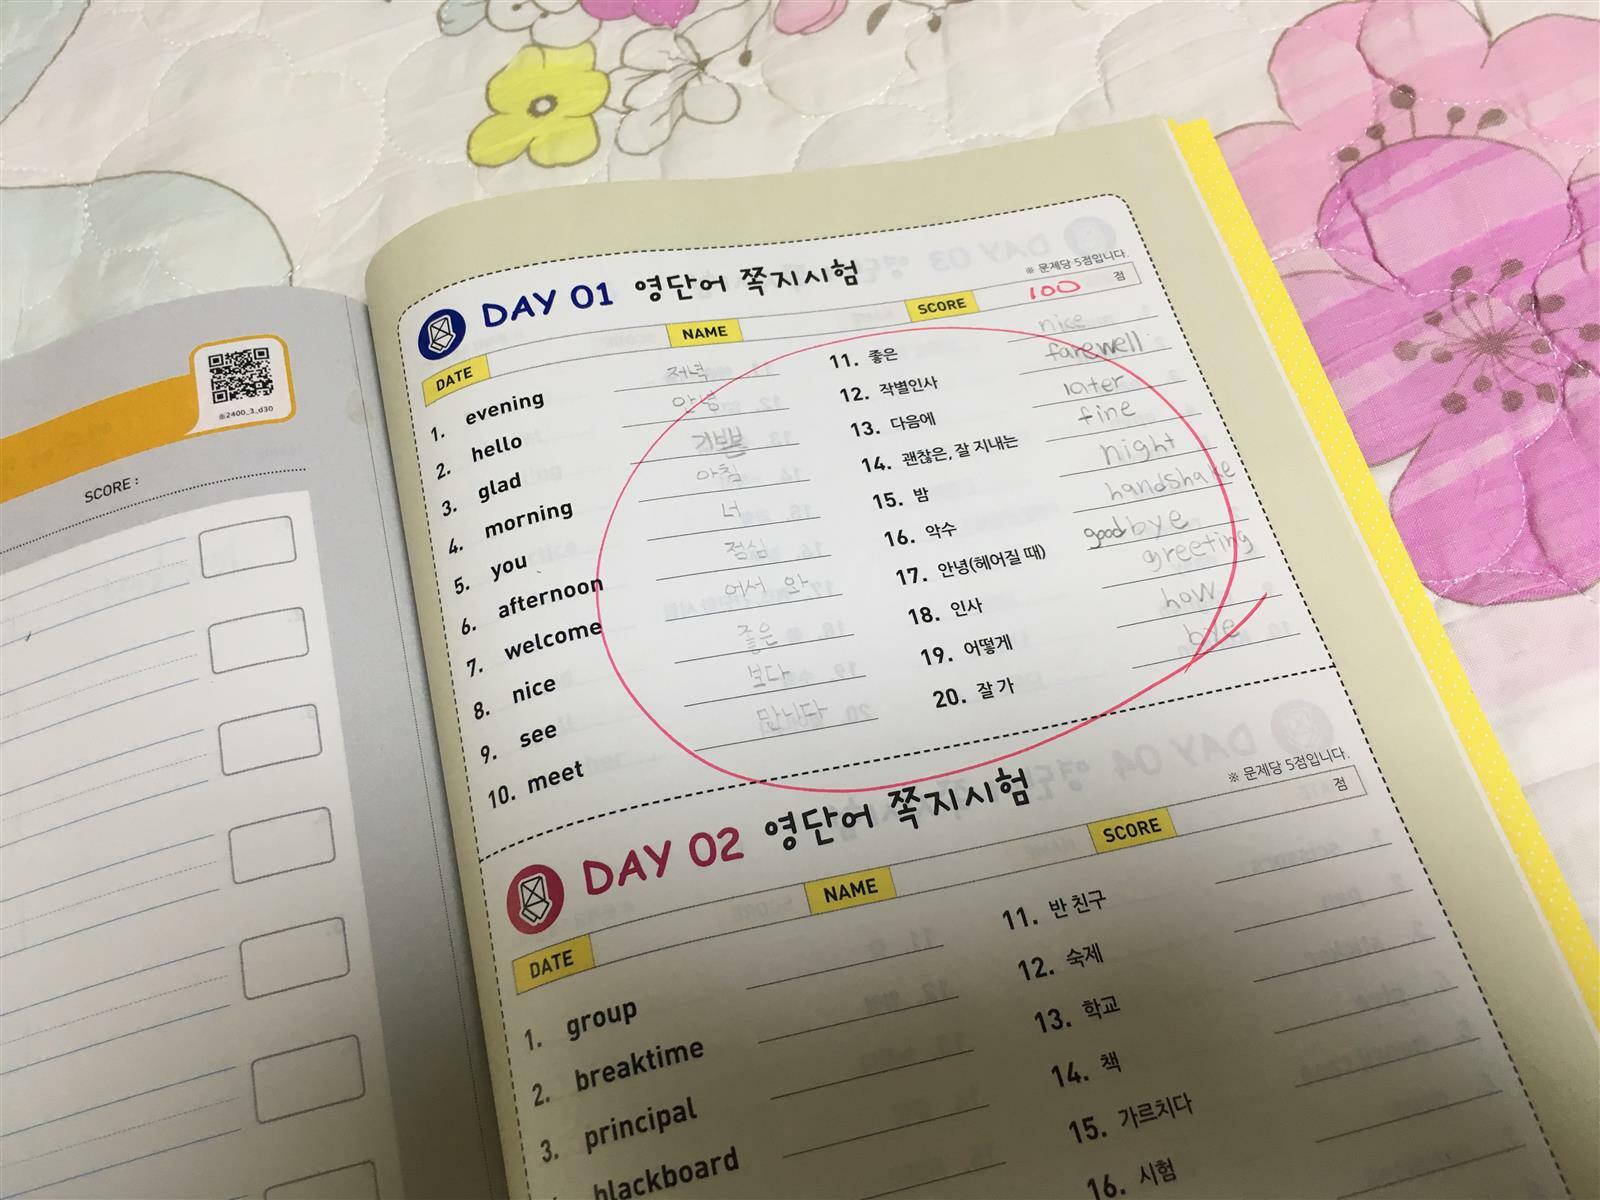 ※2400_3_d30
SCORE :
DAY 01 영단어 쪽지시험
※ 문제당 5점입니다.
DATE NAME SCORE 100 점
1. evening 저녁
2. hello 안녕
3. glad 기쁜
4. morning 아침
5. you 너
6. afternoon 점심
7. welcome 어서 와
8. nice 좋은
9. see 보다
10. meet 만니다
11. 좋은 nice
12. 작별인사 farewell
13. 다음에 later
14. 괜찮은, 잘 지내는 fine
15. 밤 night
16. 악수 handshake
17. 안녕(헤어질 때) goodbye
18. 인사 greeting
19. 어떻게 how
20. 잘 가 bye
DAY 02 영단어 쪽지시험
※ 문제당 5점입니다.
DATE NAME SCORE 점
1. group
2. breaktime
3. principal
blackboard
11. 반 친구
12. 숙제
13. 학교
14. 책
15. 가르치다
16. 시험